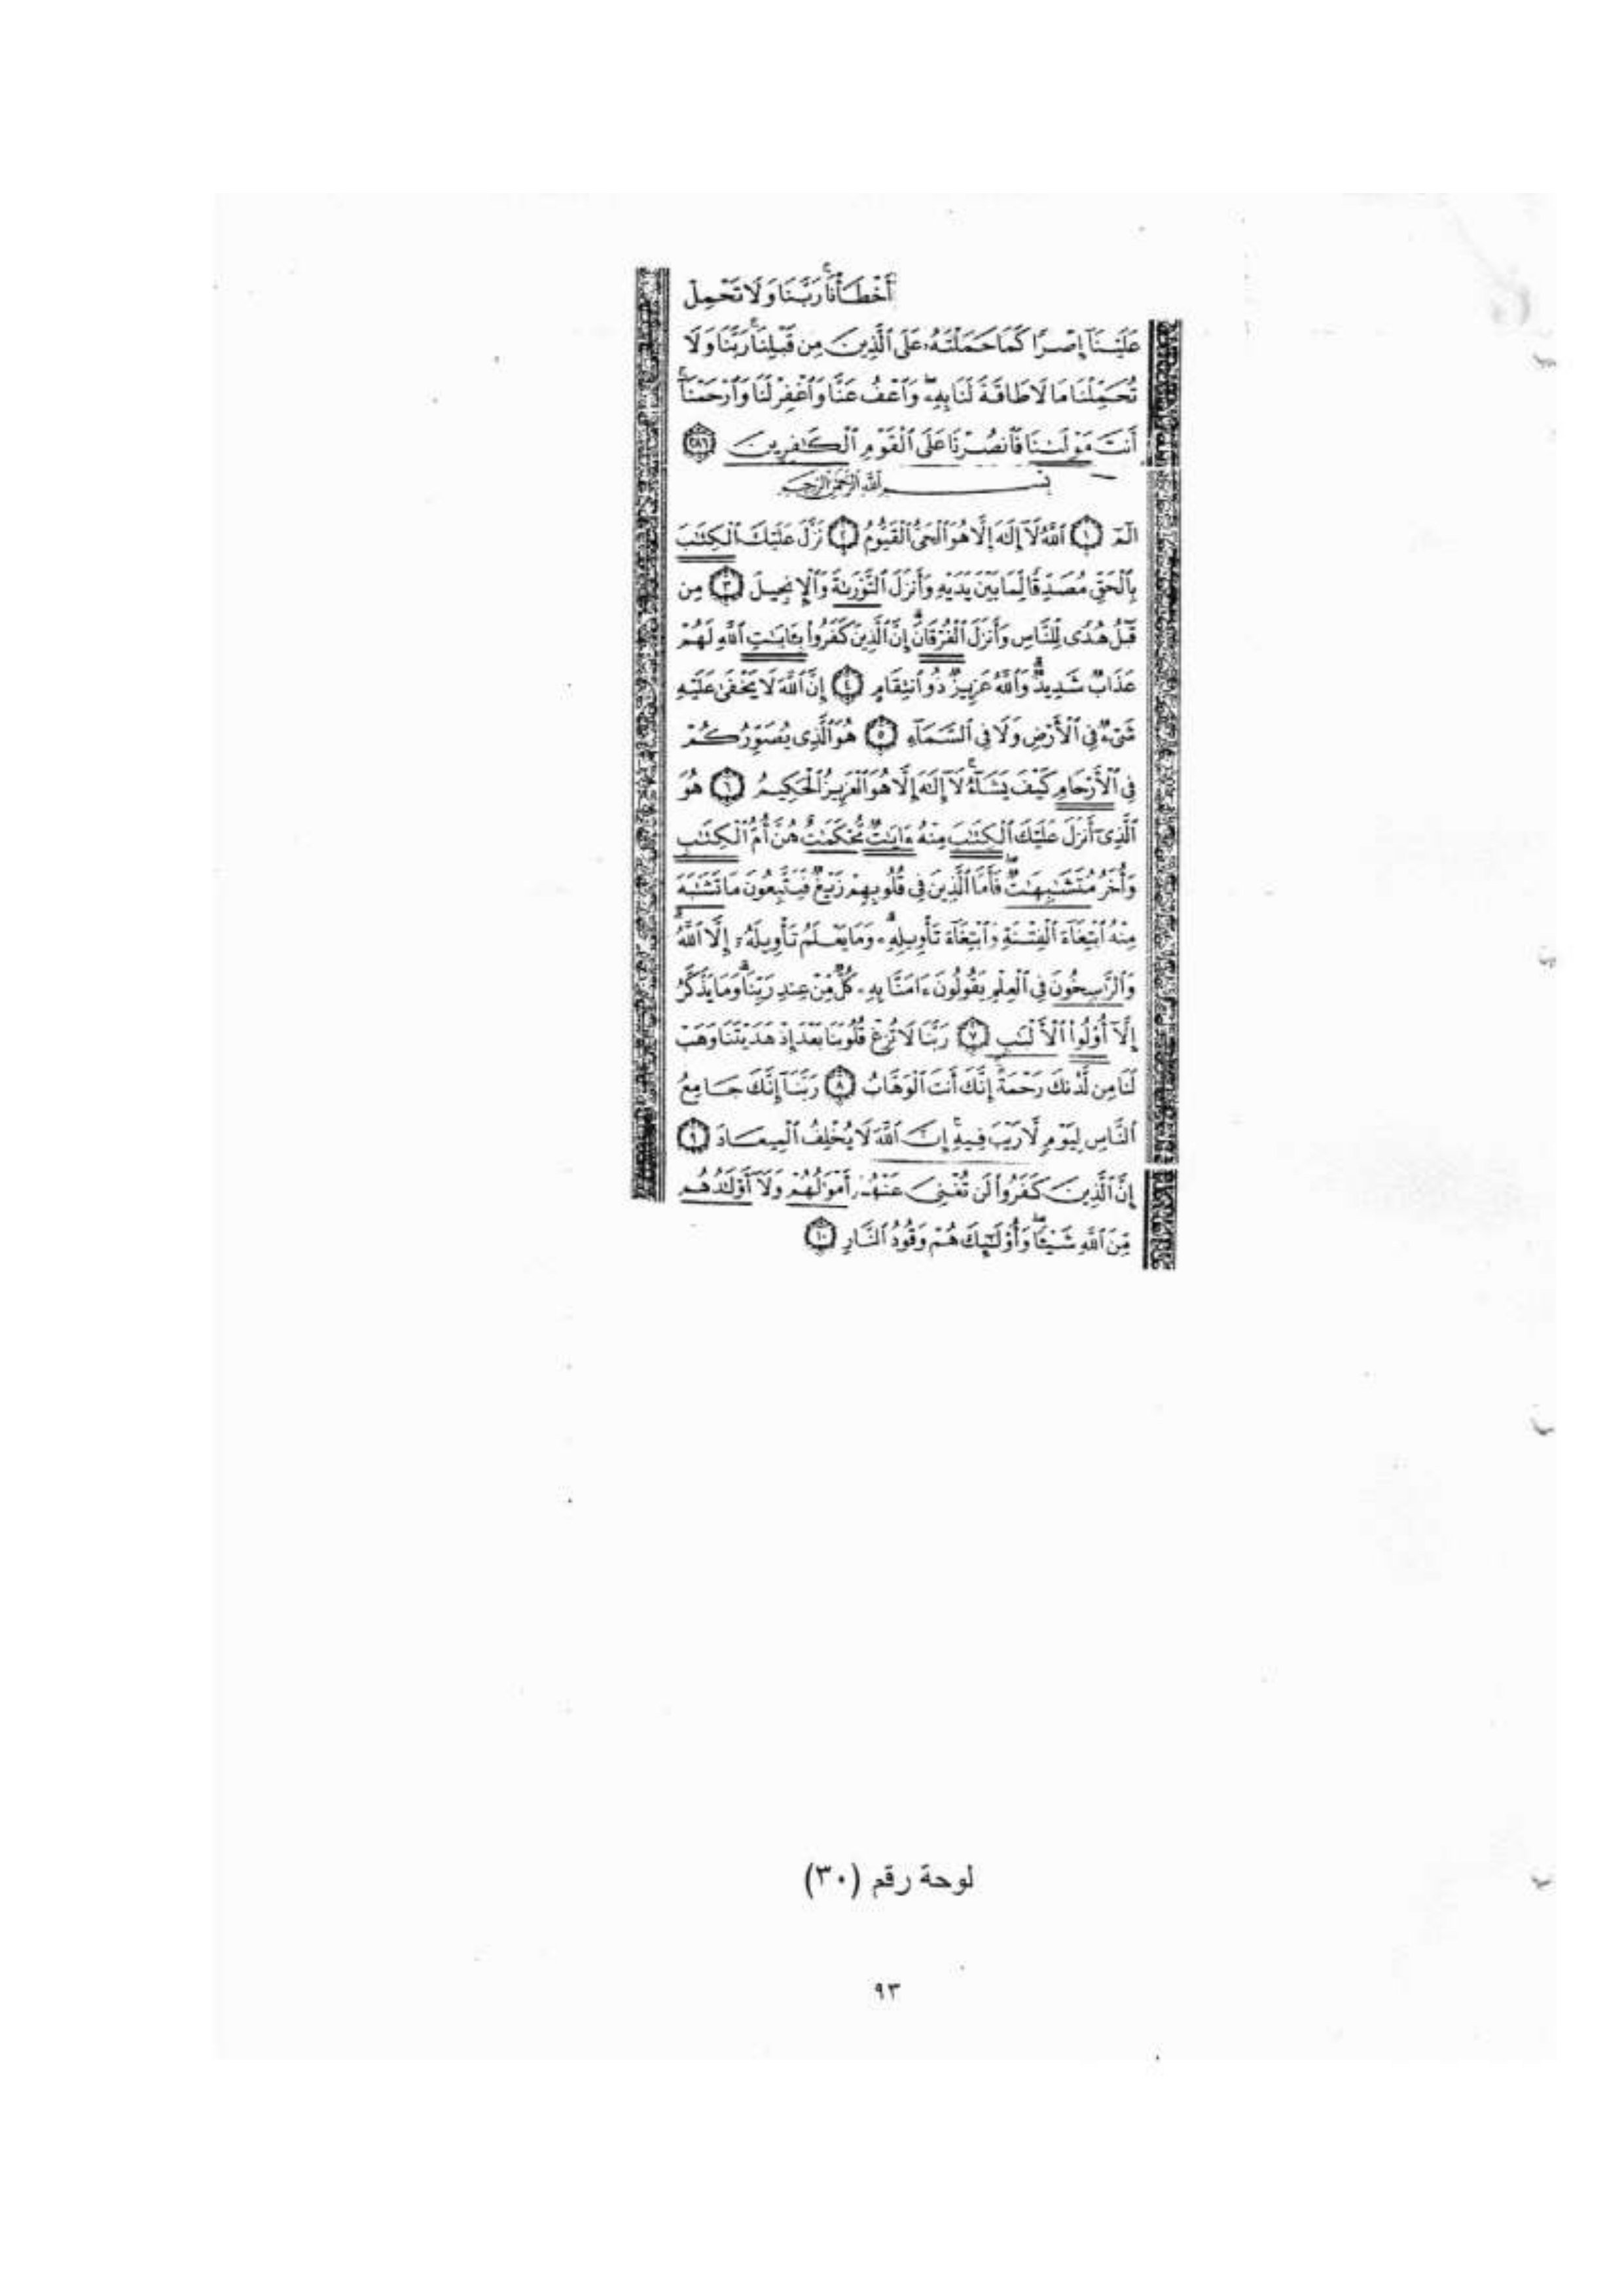 أَخْطَأْنَا ۚ رَبَّنَا وَلَا تَحْمِلْ
عَلَيْنَآ إِصْرًا كَمَا حَمَلْتَهُۥ عَلَى ٱلَّذِينَ مِن قَبْلِنَا ۚ رَبَّنَا وَلَا
تُحَمِّلْنَا مَا لَا طَاقَةَ لَنَا بِهِۦ ۖ وَٱعْفُ عَنَّا وَٱغْفِرْ لَنَا وَٱرْحَمْنَآ ۚ
أَنتَ مَوْلَىٰنَا فَٱنصُرْنَا عَلَى ٱلْقَوْمِ ٱلْكَٰفِرِينَ ٢٨٦
بِسْمِ ٱللَّهِ ٱلرَّحْمَٰنِ ٱلرَّحِيمِ
الٓمٓ ١ ٱللَّهُ لَآ إِلَٰهَ إِلَّا هُوَ ٱلْحَىُّ ٱلْقَيُّومُ ٢ نَزَّلَ عَلَيْكَ ٱلْكِتَٰبَ
بِٱلْحَقِّ مُصَدِّقًا لِّمَا بَيْنَ يَدَيْهِ وَأَنزَلَ ٱلتَّوْرَىٰةَ وَٱلْإِنجِيلَ ٣ مِن
قَبْلُ هُدًى لِّلنَّاسِ وَأَنزَلَ ٱلْفُرْقَانَ ۗ إِنَّ ٱلَّذِينَ كَفَرُوا۟ بِـَٔايَٰتِ ٱللَّهِ لَهُمْ
عَذَابٌ شَدِيدٌ ۗ وَٱللَّهُ عَزِيزٌ ذُو ٱنتِقَامٍ ٤ إِنَّ ٱللَّهَ لَا يَخْفَىٰ عَلَيْهِ
شَىْءٌ فِى ٱلْأَرْضِ وَلَا فِى ٱلسَّمَآءِ ٥ هُوَ ٱلَّذِى يُصَوِّرُكُمْ
فِى ٱلْأَرْحَامِ كَيْفَ يَشَآءُ ۚ لَآ إِلَٰهَ إِلَّا هُوَ ٱلْعَزِيزُ ٱلْحَكِيمُ ٦ هُوَ
ٱلَّذِىٓ أَنزَلَ عَلَيْكَ ٱلْكِتَٰبَ مِنْهُ ءَايَٰتٌ مُّحْكَمَٰتٌ هُنَّ أُمُّ ٱلْكِتَٰبِ
وَأُخَرُ مُتَشَٰبِهَٰتٌ ۖ فَأَمَّا ٱلَّذِينَ فِى قُلُوبِهِمْ زَيْغٌ فَيَتَّبِعُونَ مَا تَشَٰبَهَ
مِنْهُ ٱبْتِغَآءَ ٱلْفِتْنَةِ وَٱبْتِغَآءَ تَأْوِيلِهِۦ ۗ وَمَا يَعْلَمُ تَأْوِيلَهُۥٓ إِلَّا ٱللَّهُ ۗ
وَٱلرَّٰسِخُونَ فِى ٱلْعِلْمِ يَقُولُونَ ءَامَنَّا بِهِۦ كُلٌّ مِّنْ عِندِ رَبِّنَا ۗ وَمَا يَذَّكَّرُ
إِلَّآ أُو۟لُوا۟ ٱلْأَلْبَٰبِ ٧ رَبَّنَا لَا تُزِغْ قُلُوبَنَا بَعْدَ إِذْ هَدَيْتَنَا وَهَبْ
لَنَا مِن لَّدُنكَ رَحْمَةً ۚ إِنَّكَ أَنتَ ٱلْوَهَّابُ ٨ رَبَّنَآ إِنَّكَ جَامِعُ
ٱلنَّاسِ لِيَوْمٍ لَّا رَيْبَ فِيهِ ۚ إِنَّ ٱللَّهَ لَا يُخْلِفُ ٱلْمِيعَادَ ٩
إِنَّ ٱلَّذِينَ كَفَرُوا۟ لَن تُغْنِىَ عَنْهُمْ أَمْوَٰلُهُمْ وَلَآ أَوْلَٰدُهُم
مِّنَ ٱللَّهِ شَيْـًٔا ۖ وَأُو۟لَٰٓئِكَ هُمْ وَقُودُ ٱلنَّارِ ١٠
لوحة رقم (٣٠)
٩٣